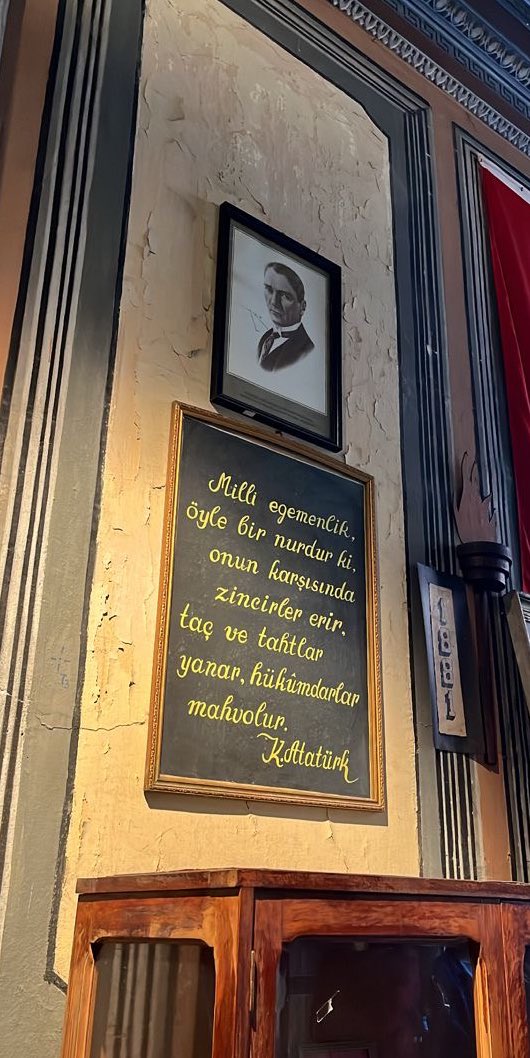 Milli egemenlik,
öyle bir nurdur ki,
onun karşısında
zincirler erir,
taç ve tahtlar
yanar, hükûmdarlar
mahvolur.
K.Atatürk
1881